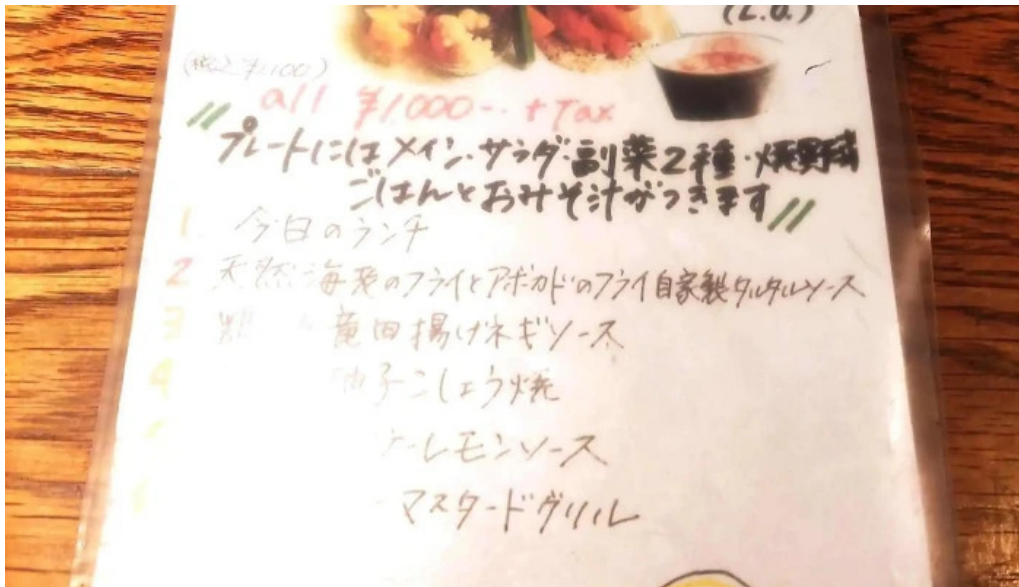 (L.a.)
(税込¥1,100)
all ¥1,000-. + Tax
プレートにはメイン・サラダ・副菜2種・
ごはんとおみそ汁がつきます
1. 今日のランチ
2 天然海老のフライとアボカドのフライ自家製タルタルソース
3 竜田揚げネギソース
4 柚子こしょう焼
レモンソース
マスタードグリル